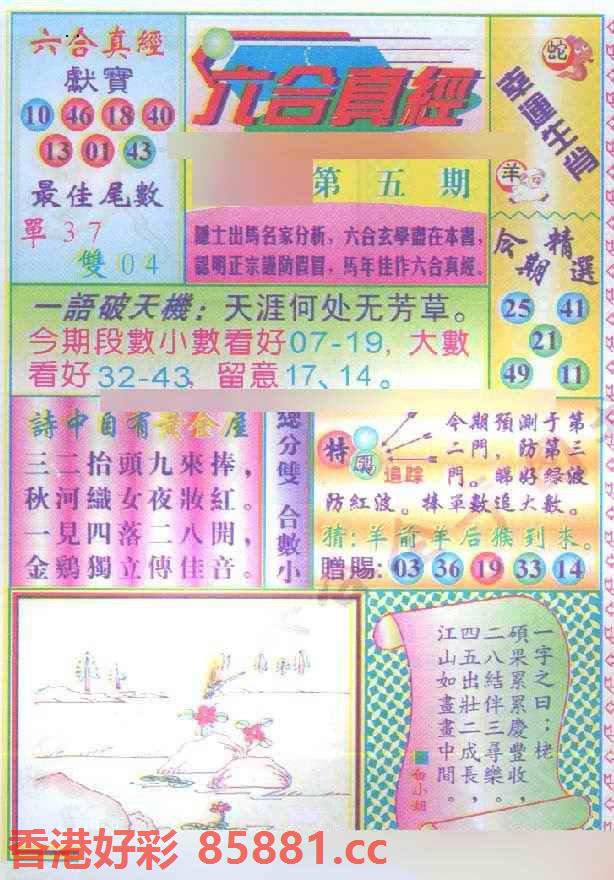 六合真經
獻寶
10 46 18 40
13 01 43
最佳尾數
單37
雙04
六合真經
第五期
隱士出馬名家分析，六合玄學盡在本書，
認明正宗謹防假冒，馬年佳作六合真經。
幸運生肖
蛇
羊
今期精選
25 41
21
49 11
一語破天機：天涯何处无芳草。
今期段數小數看好07-19，大數
看好32-43，留意17、14。
詩中自有黃金屋
三二抬頭九來捧，
秋河織女夜妝紅。
一見四落二八開，
金鷄獨立傳佳音。
總分雙 合數小
特
追踪
今期預測于第
二門，防第三
門。睇好綠波
防紅波。棒單數追大數。
猜：羊前羊后猴到来。
贈賜：03 36 19 33 14
一字之曰：栳
碩果累累慶豐收，
二八結伴三尋樂。
四五出壯二成長，
江山如畫畫中間。
白小姐
香港好彩 85881.cc